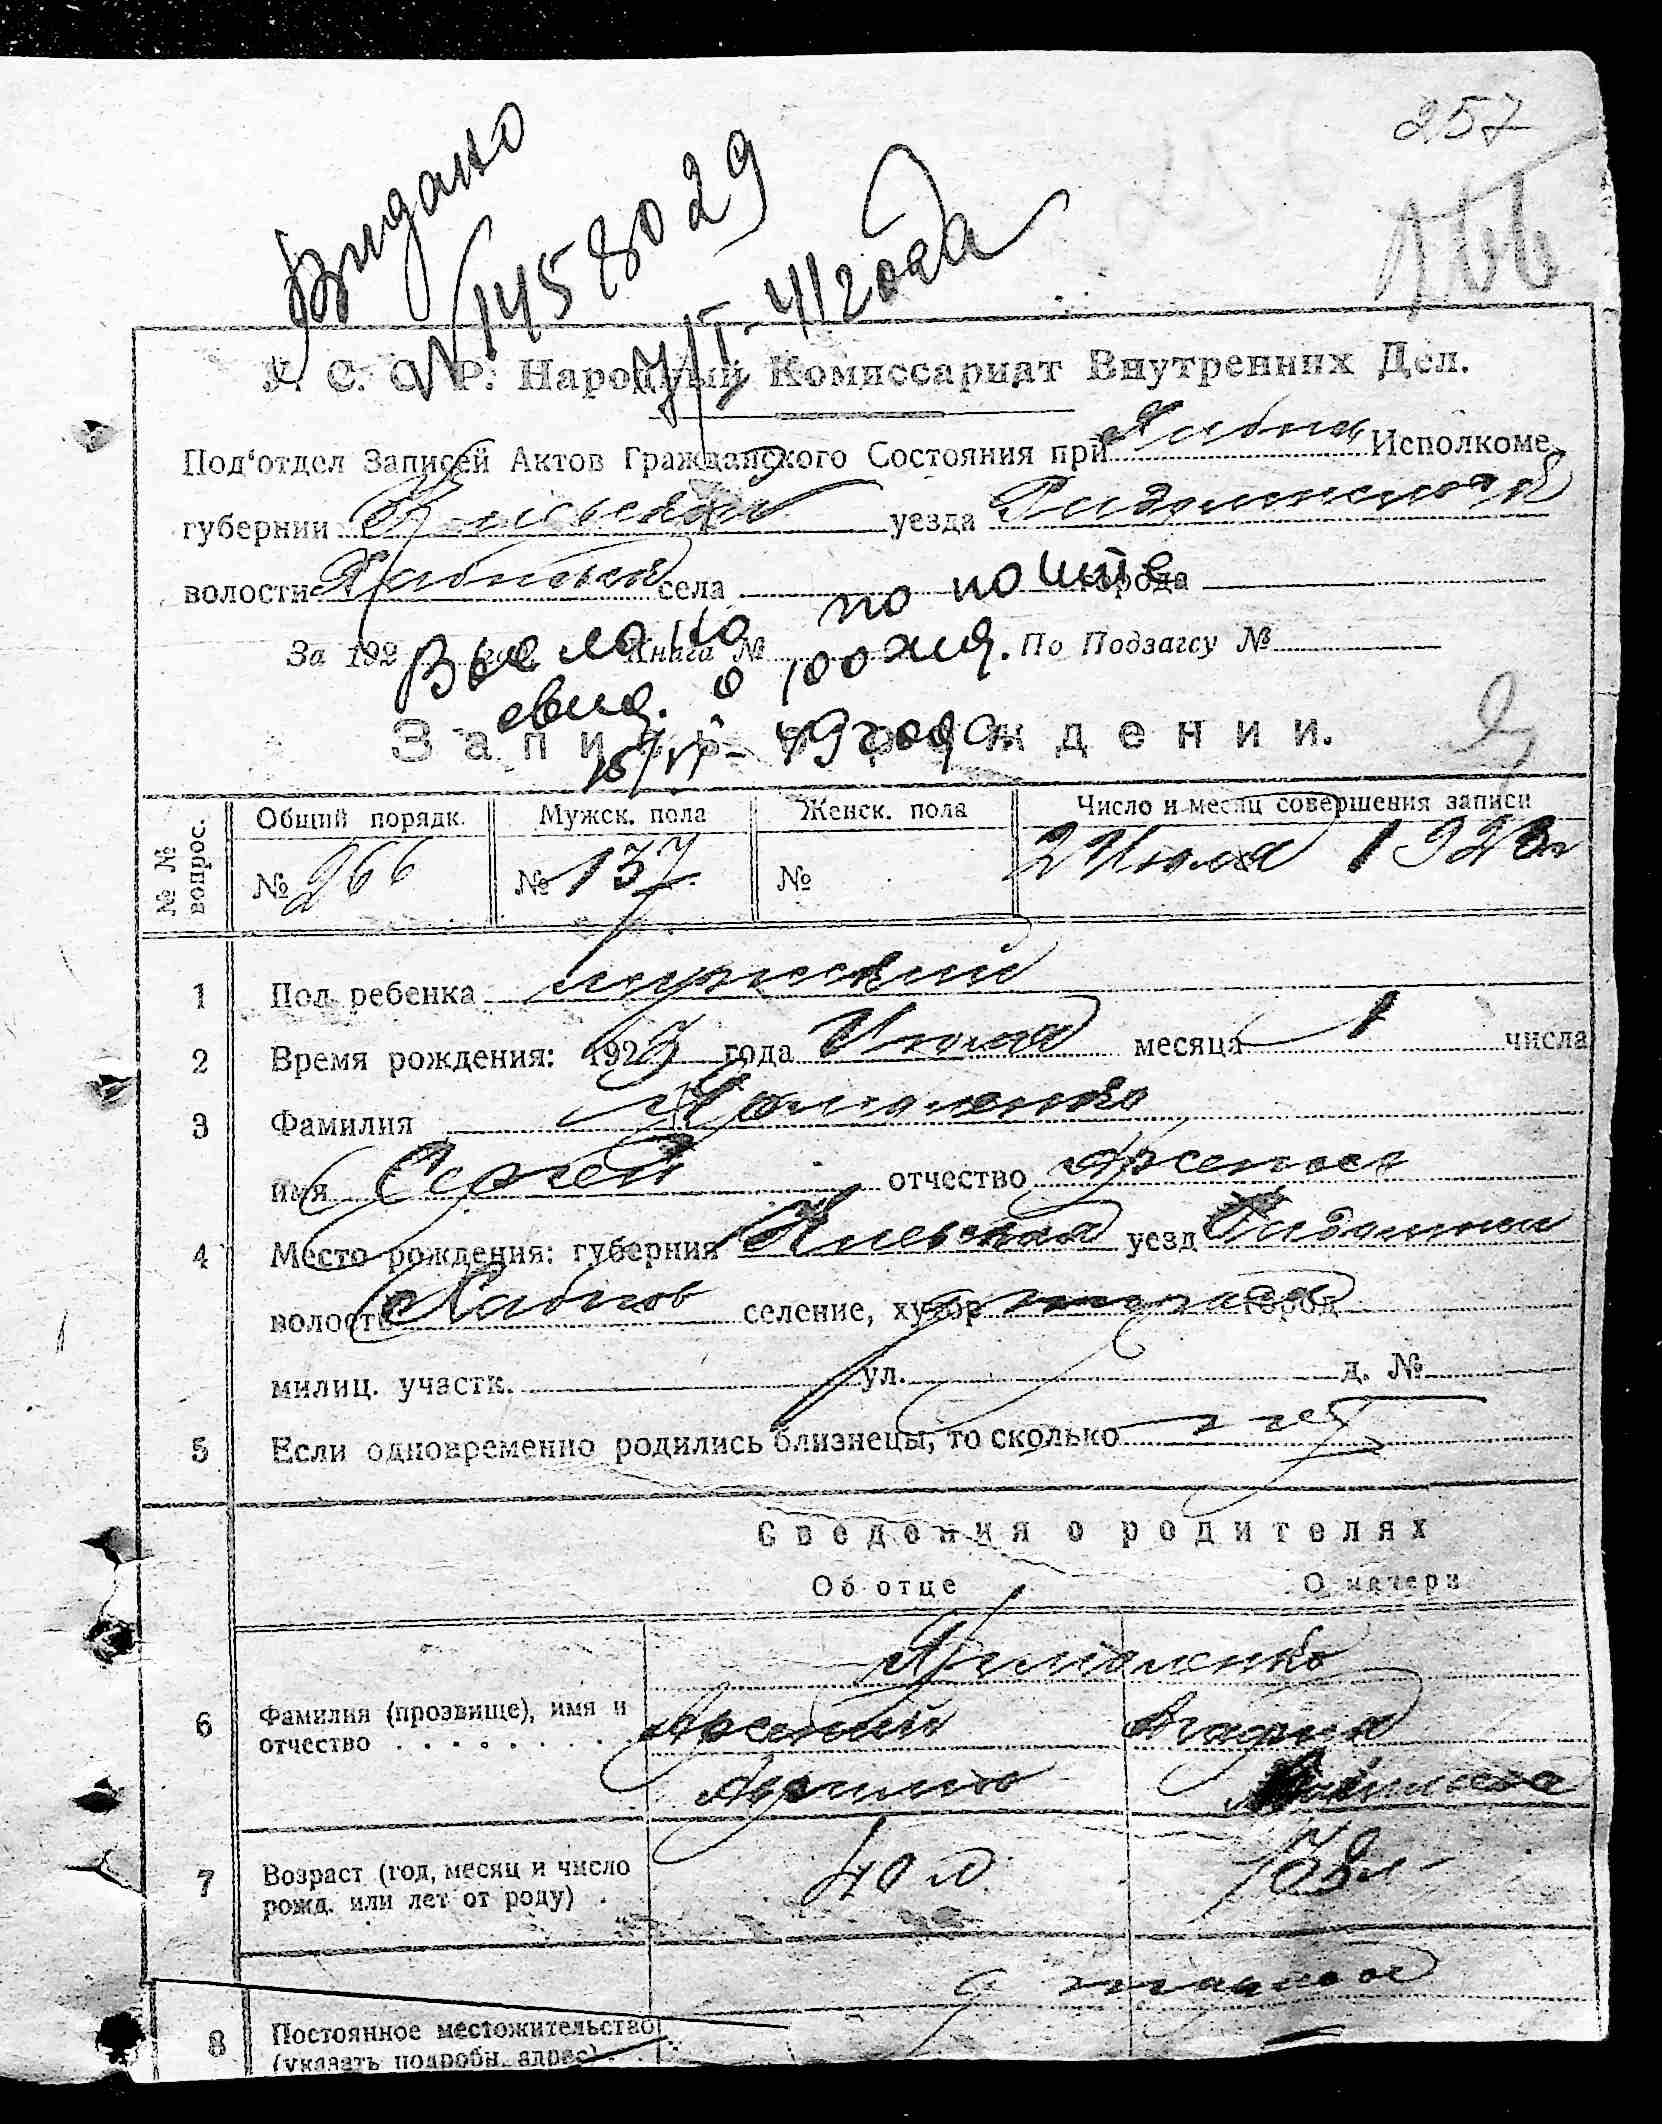 257
166
Видано
№1458029
7/І-41 года
У. С. С. Р. Народный Комиссариат Внутренних Дел.
Под'отдел Записей Актов Гражданского Состояния при Хабны Исполкоме
губернии Киевской уезда
волости Хабное села города
За 192 год. Книга № По Подзагсу №
Выслано по почте
свид. о рожд.
15/VI-49 года
Запись о рождении.
№ № вопрос.
Общий порядк. Мужск. пола Женск. пола Число и месяц совершения записи
№ 266 № 137 № 2 Июля 1923 г
1 Пол ребенка мужский
2 Время рождения: 1923 года Июля месяца 1 числа
3 Фамилия Ярмоленко
имя Сергей отчество Арсенов
4 Место рождения: губерния Киевская уезд
волость Хабнов селение, хутор город
милиц. участк. ул. д. №
5 Если одновременно родились близнецы, то сколько нет
Сведения о родителях
Об отце О матери
Ярмоленко
6 Фамилия (прозвище), имя и отчество . . . . . . . . Арсений Агафия
7 Возраст (год, месяц и число рожд. или лет от роду) . 40 л 38 л
8 Постоянное местожительство (указать подробн. адрес) .